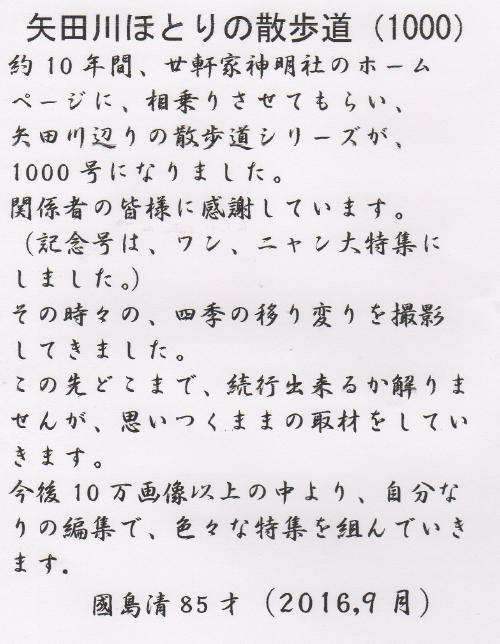 矢田川ほとりの散歩道（1000）
約10年間、廿軒家神明社のホーム
ページに、相乗りさせてもらい、
矢田川辺りの散歩道シリーズが、
1000号になりました。
関係者の皆様に感謝しています。
（記念号は、ワン、ニャン大特集に
しました。）
その時々の、四季の移り変りを撮影
してきました。
この先どこまで、続行出来るか解りま
せんが、思いつくままの取材をしてい
きます。
今後10万画像以上の中より、自分な
りの編集で、色々な特集を組んでいき
ます.
國島清85才（2016,9月）